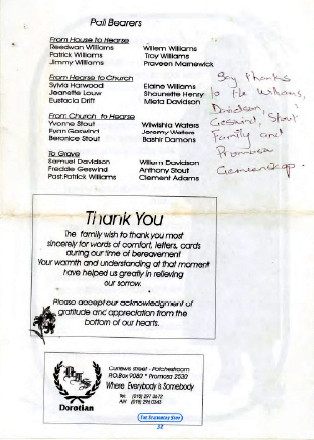 Pall Bearers
From House to Hearse
Reedwan Williams Willem Williams
Patrick Williams Troy Williams
Jimmy Williams Praveen Marnewick
From Hearse to Church
Sylvia Harwood Elaine Williams
Jeanette Louw Shaunette Henry
Eustacia Drift Mieta Davidson
From Church to Hearse
Yvonne Stout Wilwishia Waters
Fynn Geswind Jeremy Waters
Beronice Stout Bashir Damons
To Grave
Samuel Davidson Willem Davidson
Freddie Geswind Anthony Stout
Past.Patrick Williams Clement Adams
Say thanks
to the Williams,
Davidson,
Geswind, Stout
Family and
Promosa
Thank You
The family wish to thank you most
sincerely for words of comfort, letters, cards
during our time of bereavement
Your warmth and understanding at that moment
have helped us greatly in relieving
our sorrow.
Please accept our acknowledgment of
gratitude and appreciation from the
bottom of our hearts.
Dorotian
Curlews Street - Potchefstroom
P.O.Box 9080 * Promosa 2530
Where Everybody is Somebody
Tel:
A/H
The Stationery Shop